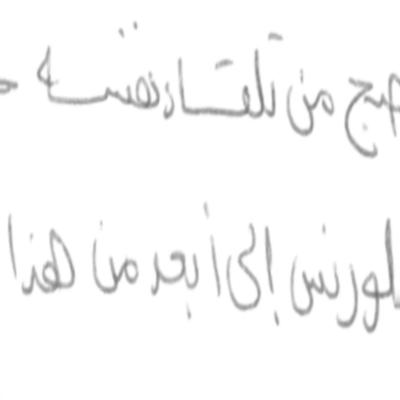 من تلقاء نفسه
لورنس إلى أبعد من هذا